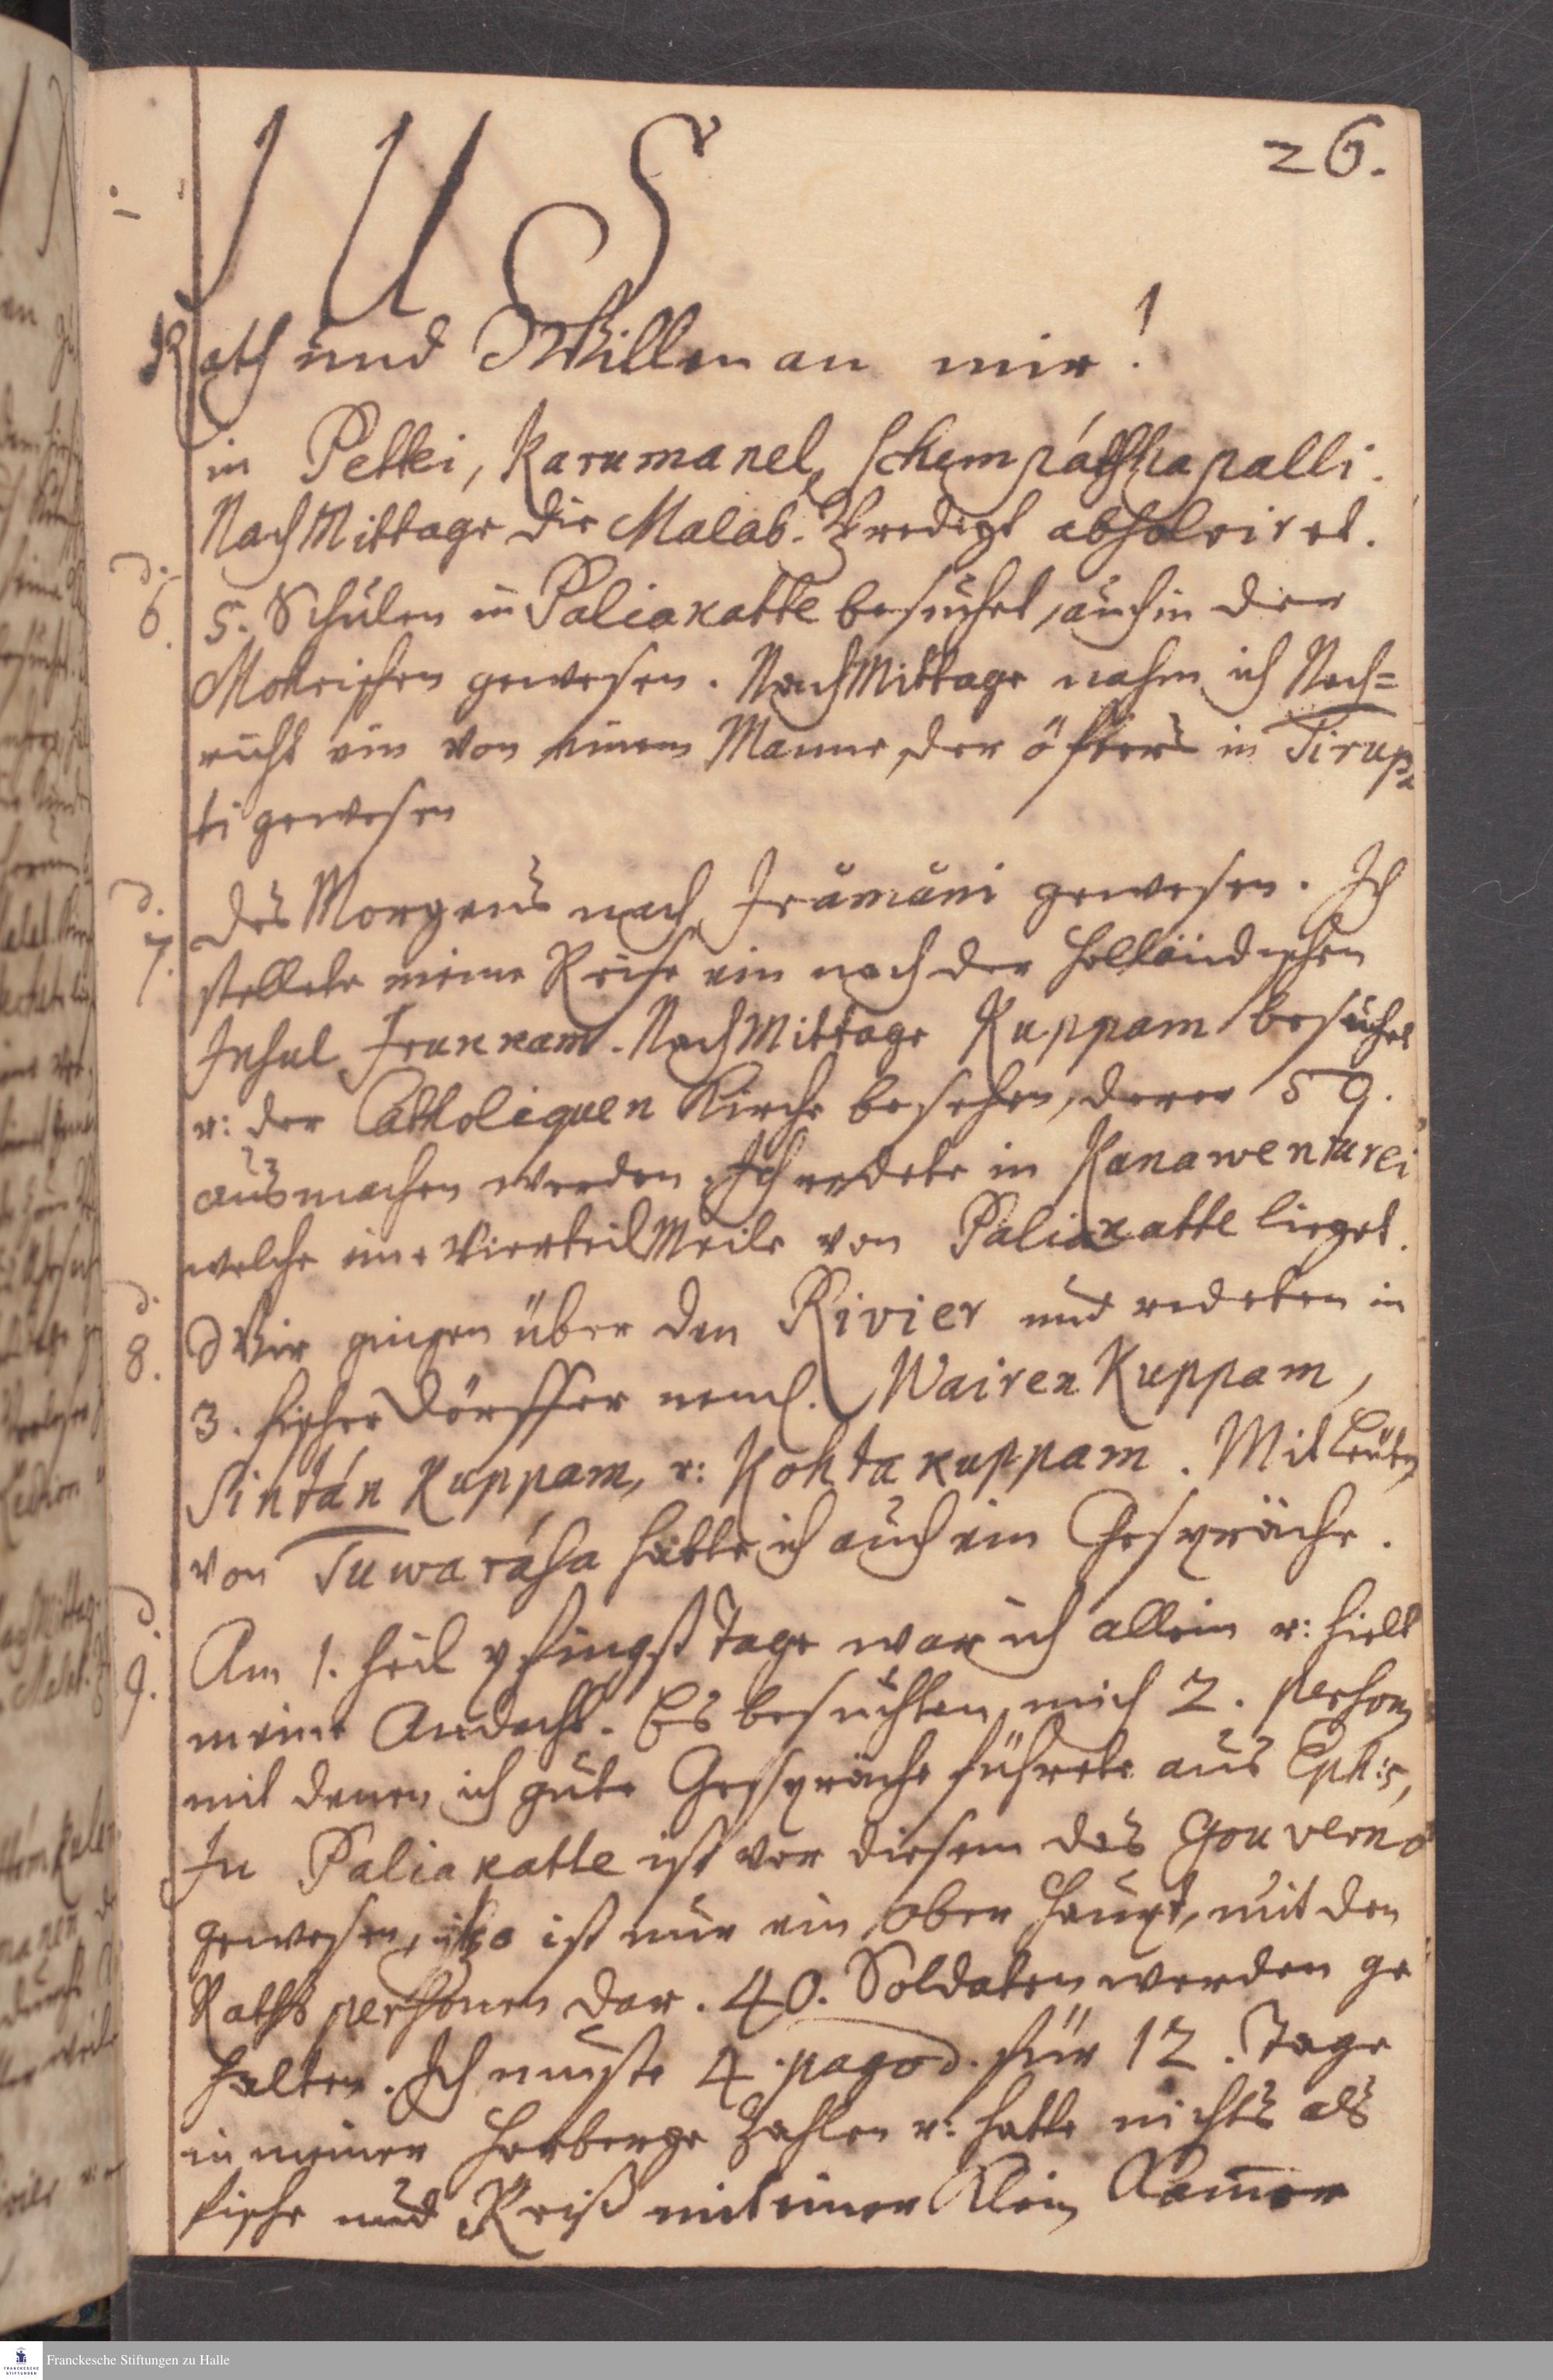 26.
J U S
Rath und Willen an mir!
in Pettei, Karumanel, Schempáthapalli.
NachMittage die Malab. Predigt absolviret.
d. 6. 5. Schulen in Paliakatte besuchet, auch in der
Mohrischen gewesen. NachMittage nahm ich Nach=
richt ein von einem Manne, der öfters in Tirup=
ti gewesen
d. 7. des Morgens nach Irámáni gewesen. Ich
stellete meine Reise ein nach der Holländischen
Insul Irukkam. NachMittage Kuppam besuchet
u: der Catholiquen Kirche besehen, derer 59.
ausmachen werden. Ich redete in Kanawenturei
welche eine Vierteil Meile von Paliakatte lieget.
d. 8. Wir gingen über den Rivier und redeten in
3. fischer Dörffer neml. Wairen Kuppam,
Sintán Kuppam, u: Kohta kuppam. Mit Leuten
von Tuwarása hatte ich auch ein Gespräche.
d. 9. Am 1. heil pfingst Tage war ich allein u: hielt
meine Andacht. Es besuchten mich 2. person
mit denen ich gute Gespräche führete aus Eph: 5,
In Paliakatte ist vor diesem das Gouverno
gewesen, itzo ist nur ein Ober Haupt, mit den
Raths personen dar. 40. Soldaten werden ge
halten. Ich muste 4. pagod. für 12. Tage
in meiner Herberge zahlen u: hatte nichts als
fische und Reiß mit einer Klein Kamer
Franckesche Stiftungen zu Halle